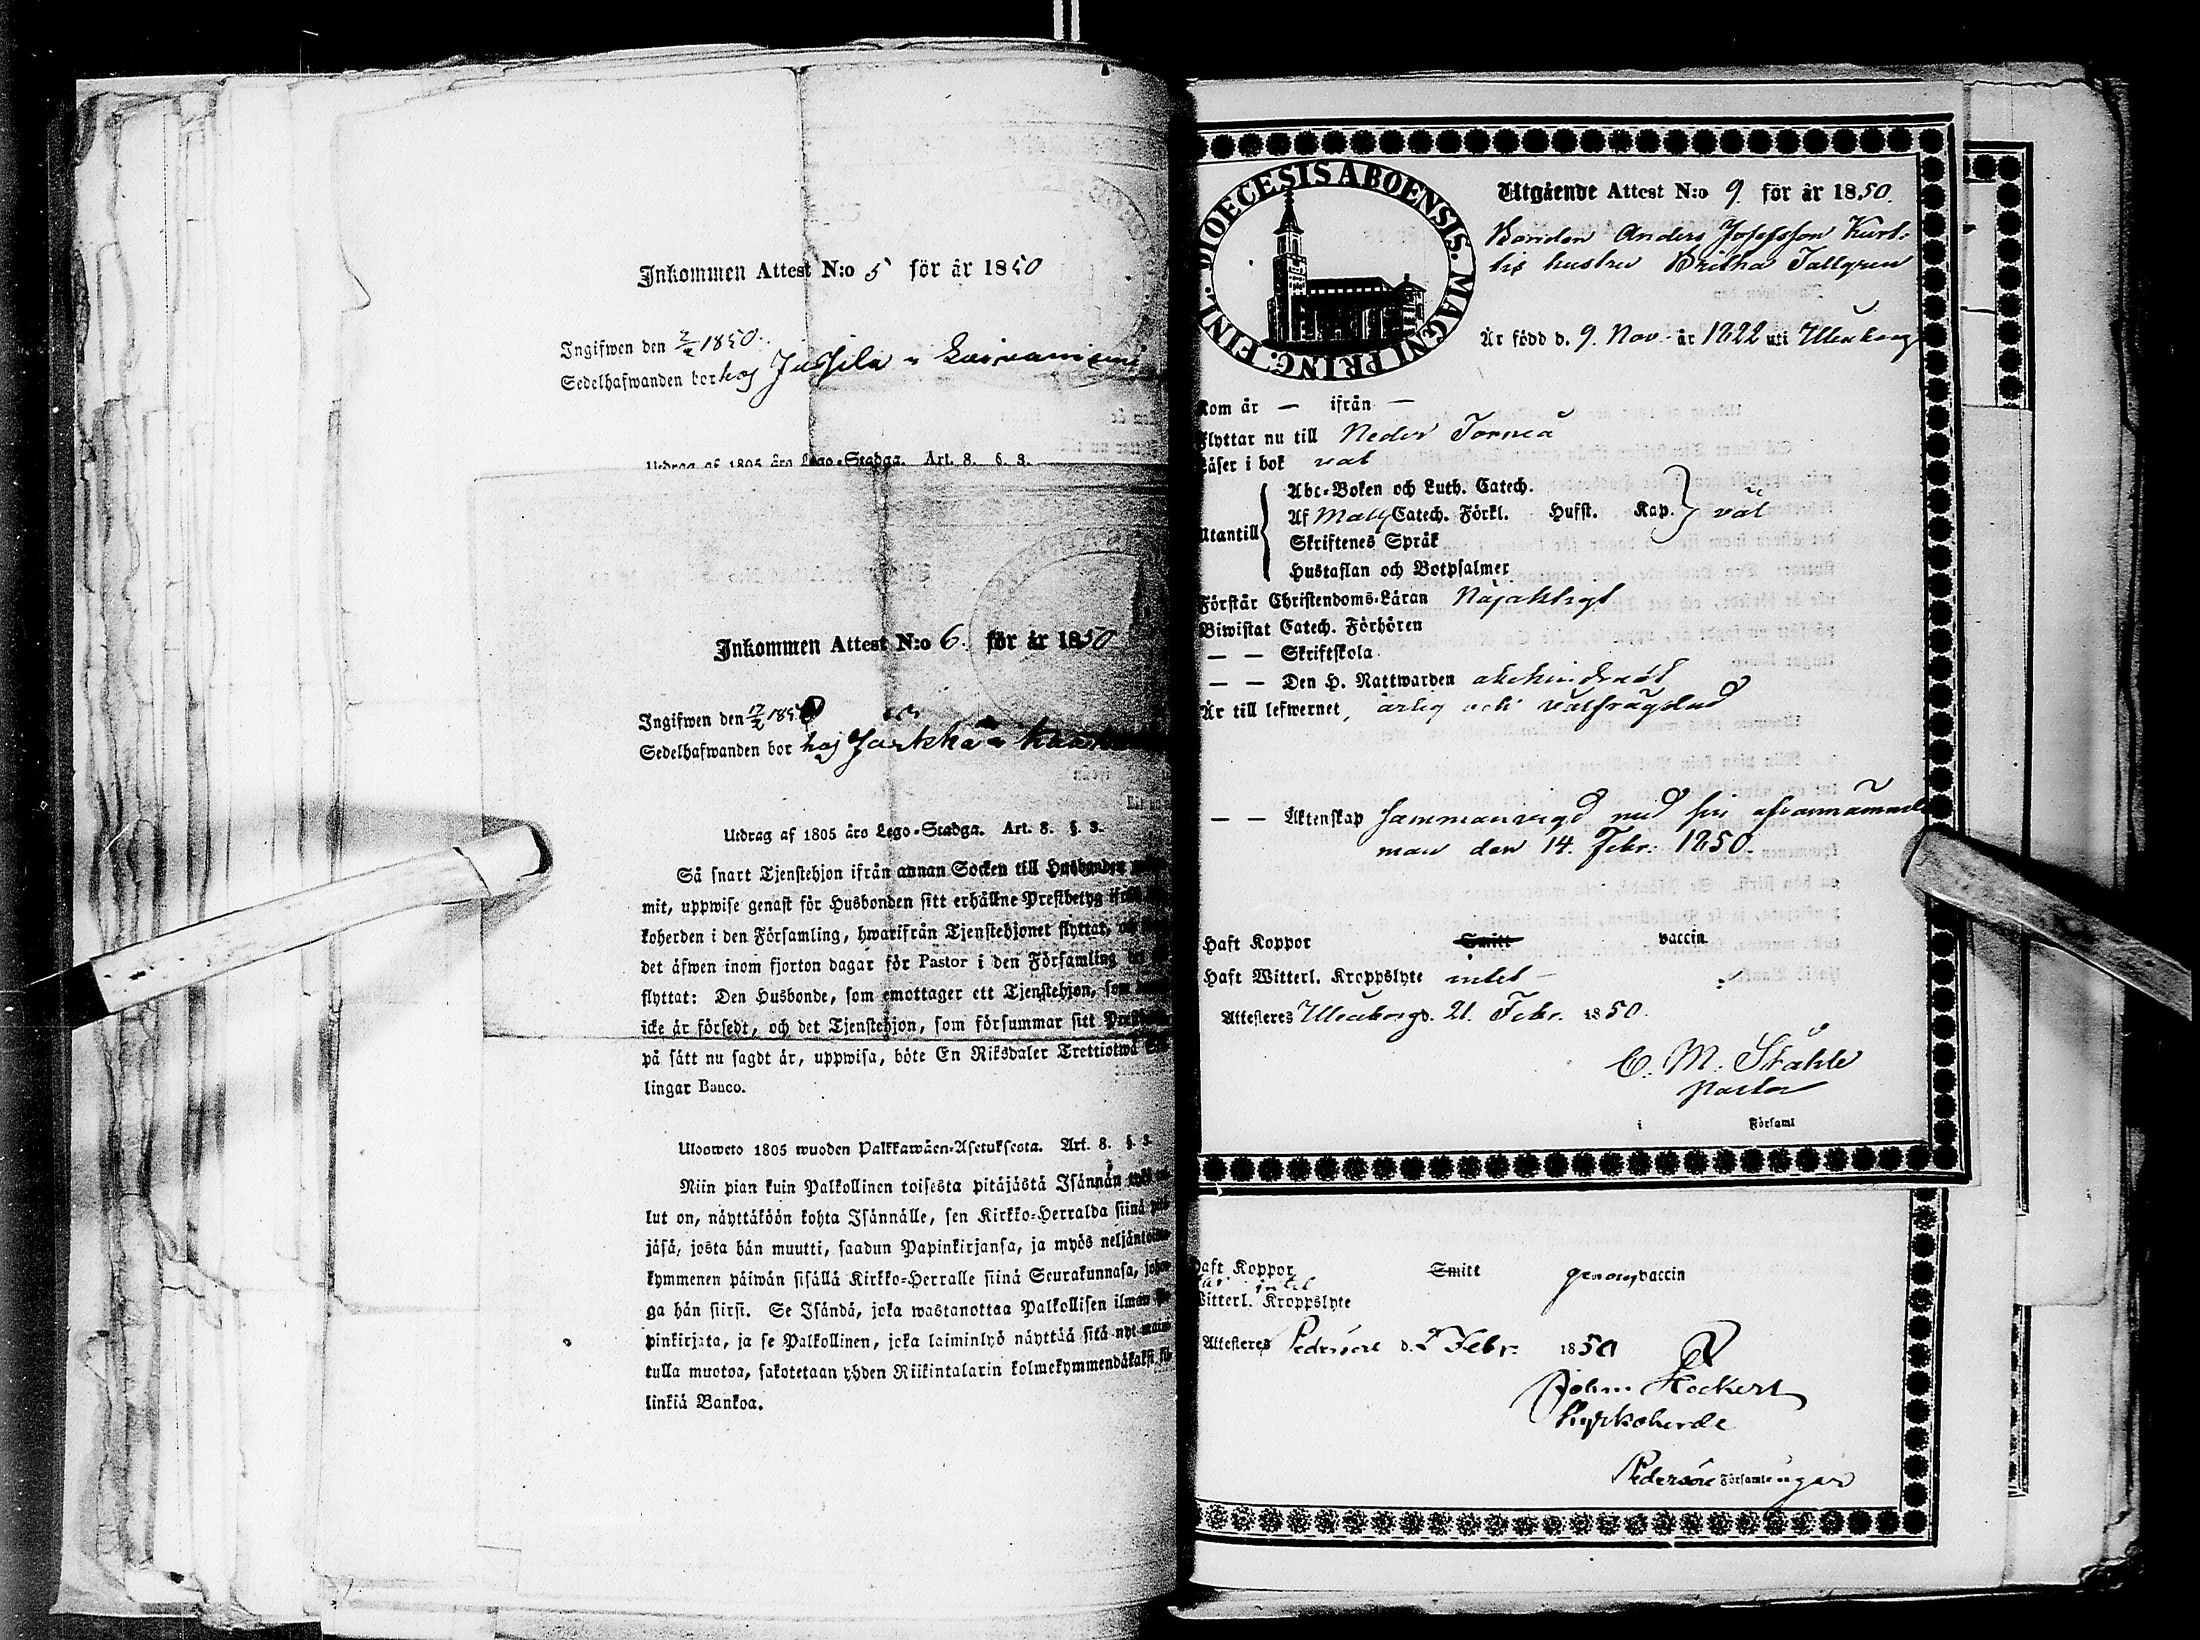 Inkommen Attest N:o 5 för år 1850
Ingifwen den 2/2 1850.
Sedelhafwanden bor hos Jussila
Utdrag af 1805 års Lego-Stadga. Art. 8. §. 3.
Inkommen Attest N:o 6. för år 1850
Ingifwen den 17/2 1850
Sedelhafwanden bor hos
Utdrag af 1805 års Lego-Stadga. Art. 8. §. 3.
Så snart Tjenstehjon ifrån annan Socken till Husbonden
mit, uppwise genast för Husbonden sitt erhållne Prestbetyg
koherden i den Församling, hwarifrån Tjenstehjonet flyttat,
det äfwen inom fjorton dagar för Pastor i den Församling
flyttat: Den Husbonde, som emottager ett Tjenstehjon, som
icke är försedt, och det Tjenstehjon, som försummar sitt
på sätt nu sagdt är, uppwisa, böte En Riksdaler Trettiotwå
lingar Banco.
Ulosweto 1805 wuoden Palkkawäen-Asetuksesta. Art. 8. §. 3.
Niin pian kuin Palkollinen toisesta pitäjästä Isännän
lut on, näyttäköön kohta Isännälle, sen Kirkko-Herralda siinä
jäsä, josta hän muutti, saadun Papinkirjansa, ja myös neljäntoista
kymmenen päiwän sisällä Kirkko-Herralle siinä Seurakunnasa,
ga hän siirsi. Se Isändä, joka wastanottaa Palkollisen ilman
pinkirjata, ja se Palkollinen, joka laiminlyö näyttää sitä nyt
tulla muotoa, sakotetaan yhden Riikintalarin kolmekymmendäkaksi
linkiä Bankoa.
DIOECESIS ABOENSIS. MAGNI PRINC. FINL.
Utgående Attest N:o 9 för år 1850.
Bonden Anders Josefsson
hustru Britha Tallgren
Är född d. 9 Nov. år 1822 uti Uleåborg
Kom år — ifrån —
Flyttar nu till Neder Torneå
Läser i bok väl
Utantill
Abc-Boken och Luth. Catech.
Af Catech. Förkl. Husst. Kap. väl
Skriftenes Språk
Hustaflan och Botpsalmer
Förstår Christendoms-Läran Nöjaktigt
Biwistat Catech. Förhören
— — Skriftskola
— — Den H. Nattwarden
Är till lefwernet, ärlig och välfrägdad
— — Äktenskap Sammanvigd med sin
man den 14. Febr. 1850.
Haft Koppor Smitt vaccin.
Haft Witterl. Kroppslyte intet —
Attesteres Uleåborg d. 21. Febr. 1850.
C. M. Ståhle
Pastor
i Församl
Haft Koppor Smitt genom vaccin
intet
Witterl. Kroppslyte
Attesteres Pedersöre d. 2 Febr. 1850
Johan Hockert
Kyrkoherde
Pedersöre Församlingar